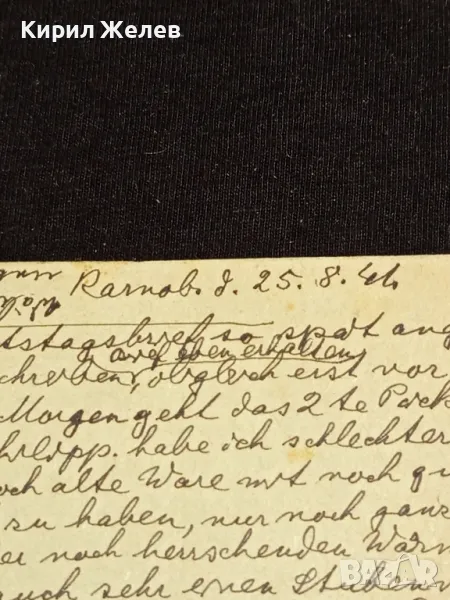 Кирил Желев
Karnob. d. 25. 8. 41.
tstagsbrief so spät ang
auf eben erhalten
chreiben, obgleich erst vor
Morgen geht das 2te Päck
hilipp. habe ich schlechter
och alte Ware mit noch gu
zu haben, nur noch ganz
er noch herrschenden Wärm
auch sehr einen Stuben
BAZAR